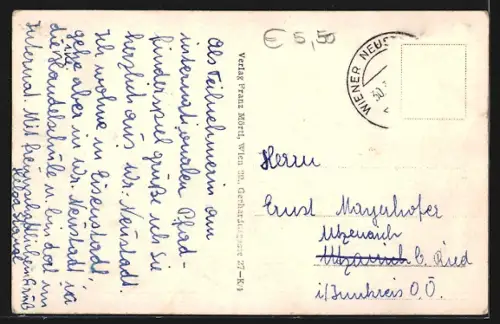 € 5,50
WIENER NEUST
Als Teilnehmerin am
internationalen Pfad-
finderspiel grüße ich Sie
herzlich aus Wr. Neustadt.
Ich wohne in Eisenstadt,
gehe aber in Wr. Neustadt in
die Handelsschule u. bin dort im
Internat. Mit freundschaftlichem Gruß
Verlag Franz Mörtl, Wien 20., Gerhardusgasse 27-K/1
Herrn
Ernst Mayerhofer
Utzenaich
b. Ried
i/Innkreis O.Ö.